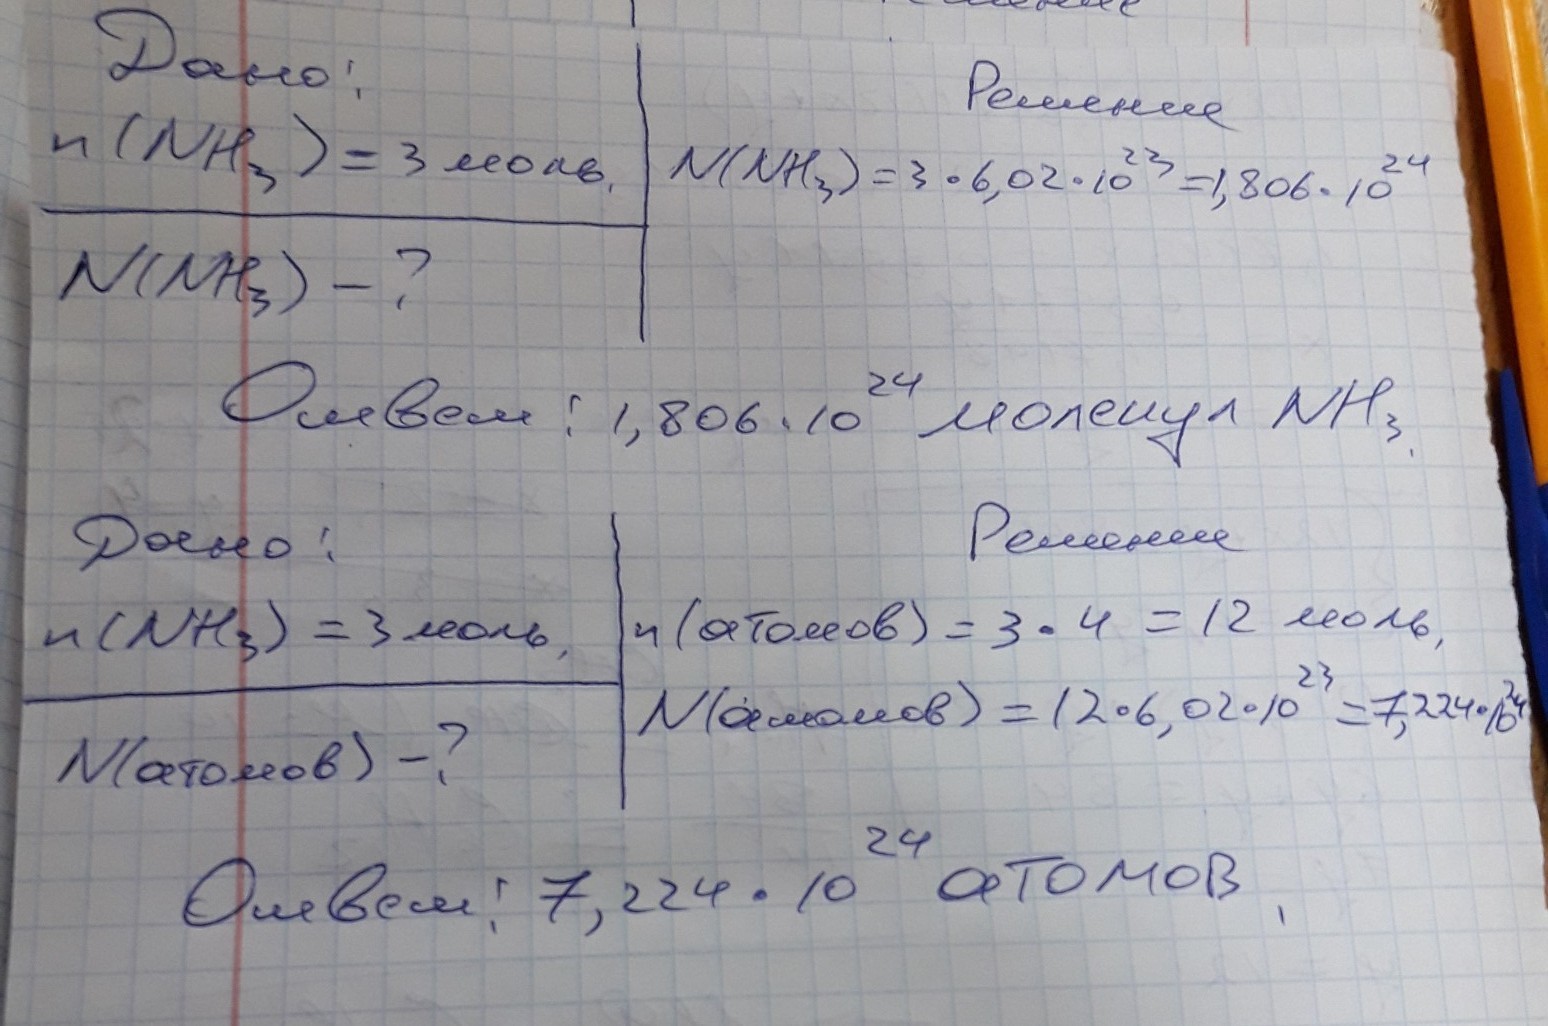 Решение
Дано:
n(NH₃) = 3 моль,
N(NH₃) - ?
Решение
N(NH₃) = 3 · 6,02 · 10²³ = 1,806 · 10²⁴
Ответ: 1,806 · 10²⁴ молекул NH₃.
Дано:
n(NH₃) = 3 моль,
N(атомов) - ?
Решение
n(атомов) = 3 · 4 = 12 моль,
N(атомов) = 12 · 6,02 · 10²³ = 7,224 · 10²⁴
Ответ: 7,224 · 10²⁴ атомов.